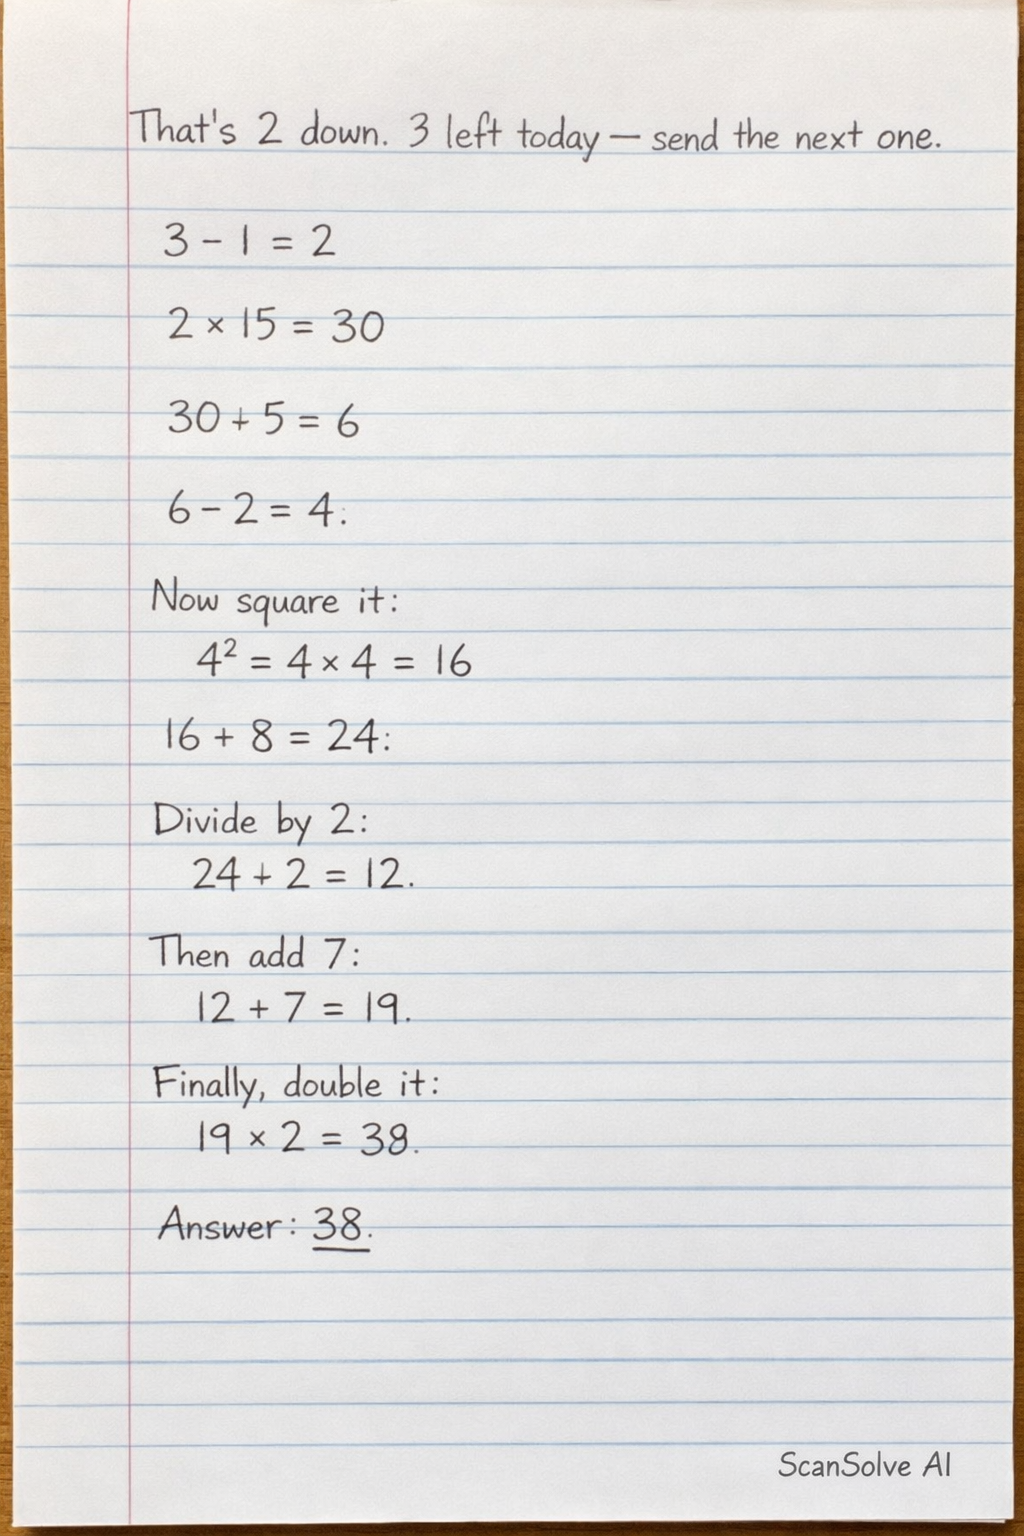 That's 2 down. 3 left today — send the next one.
3 - 1 = 2
2 × 15 = 30
30 + 5 = 6
6 - 2 = 4:
Now square it:
4² = 4 × 4 = 16
16 + 8 = 24:
Divide by 2:
24 + 2 = 12.
Then add 7:
12 + 7 = 19.
Finally, double it:
19 × 2 = 38.
Answer: 38.
ScanSolve AI